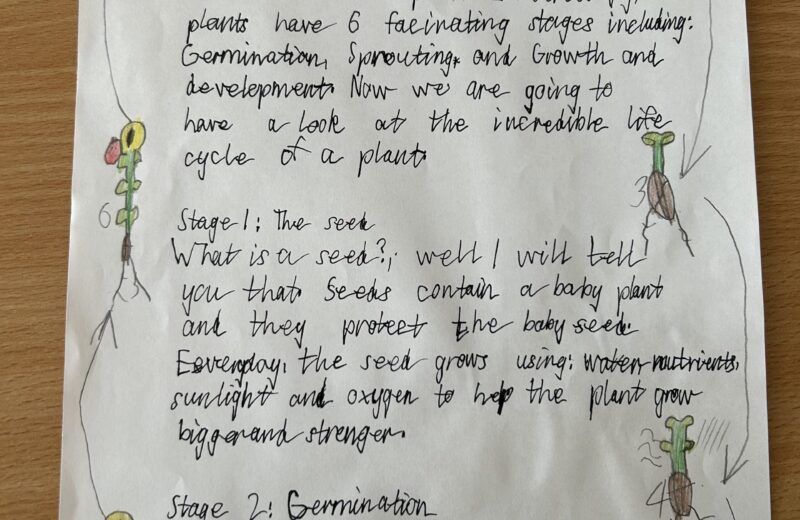 plants have 6 facinating stages including:
Germination, Sprouting, and Growth and
development. Now we are going to
have a look at the incredible life
cycle of a plant.
3
6
Stage 1: The seed
What is a seed?, well I will tell
you that. Seeds contain a baby plant
and they protect the baby seed.
Everyday, the seed grows using: water, nutrients,
sunlight and oxygen to help the plant grow
bigger and stronger.
4
Stage 2: Germination